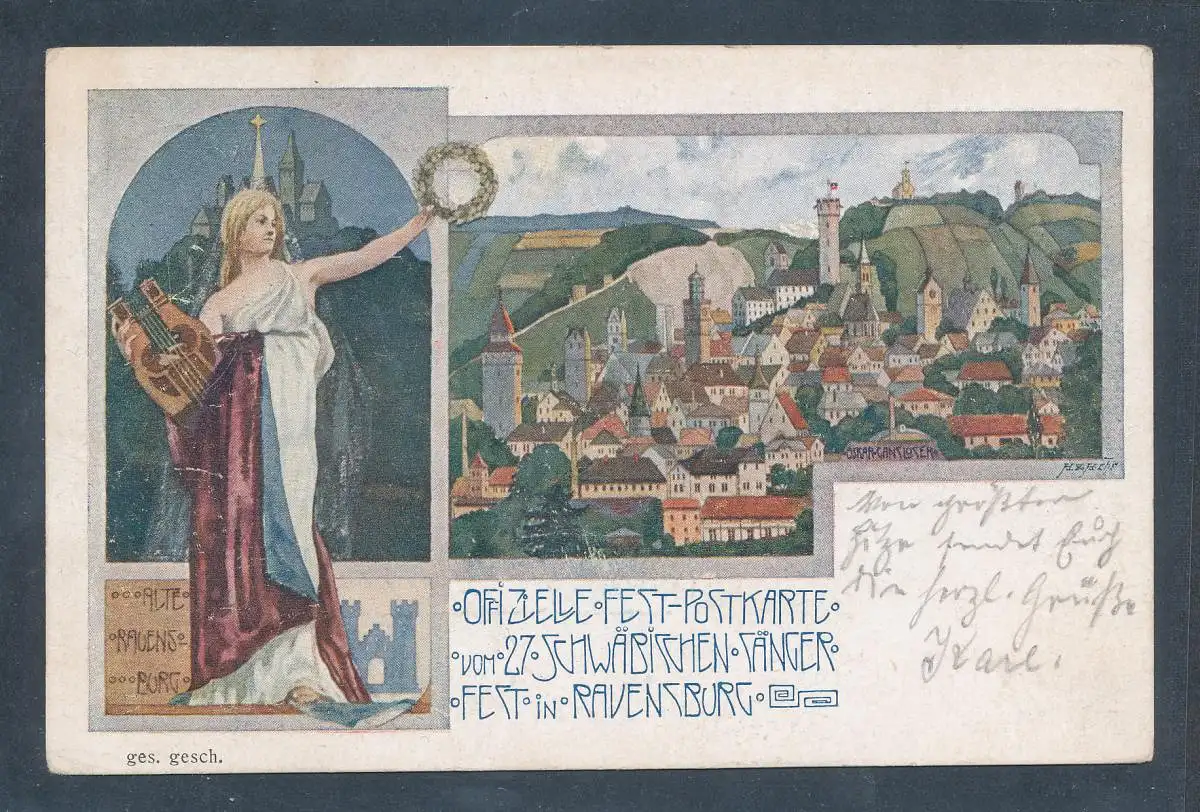 °°°ALTE°
°RAVENS-°
°°°BURG°
°OSKAR·GANSLOSER°
°OFFIZIELLE°FEST-POSTKARTE°
°VOM°27°SCHWÄBISCHEN°SÄNGER°
°FEST°IN°RAVENSBURG°
Von größter
Hitze sendet Euch
die herzl. Grüße
Karl.
ges. gesch.